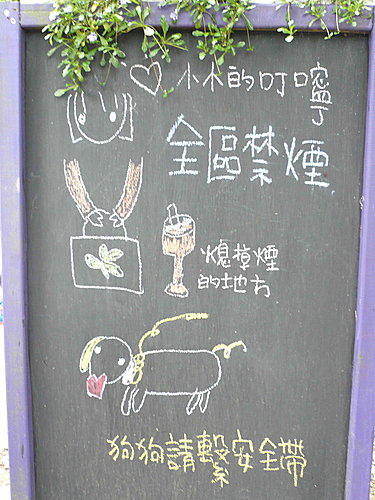 小小的叮嚀
全區禁煙
熄掉煙
的地方
狗狗請繫安全帶